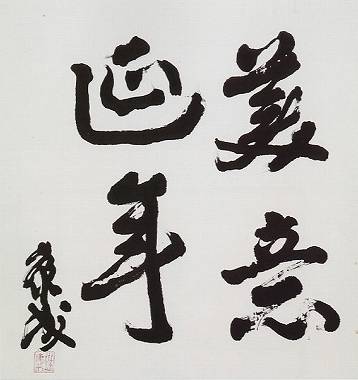 美意
延年
康成